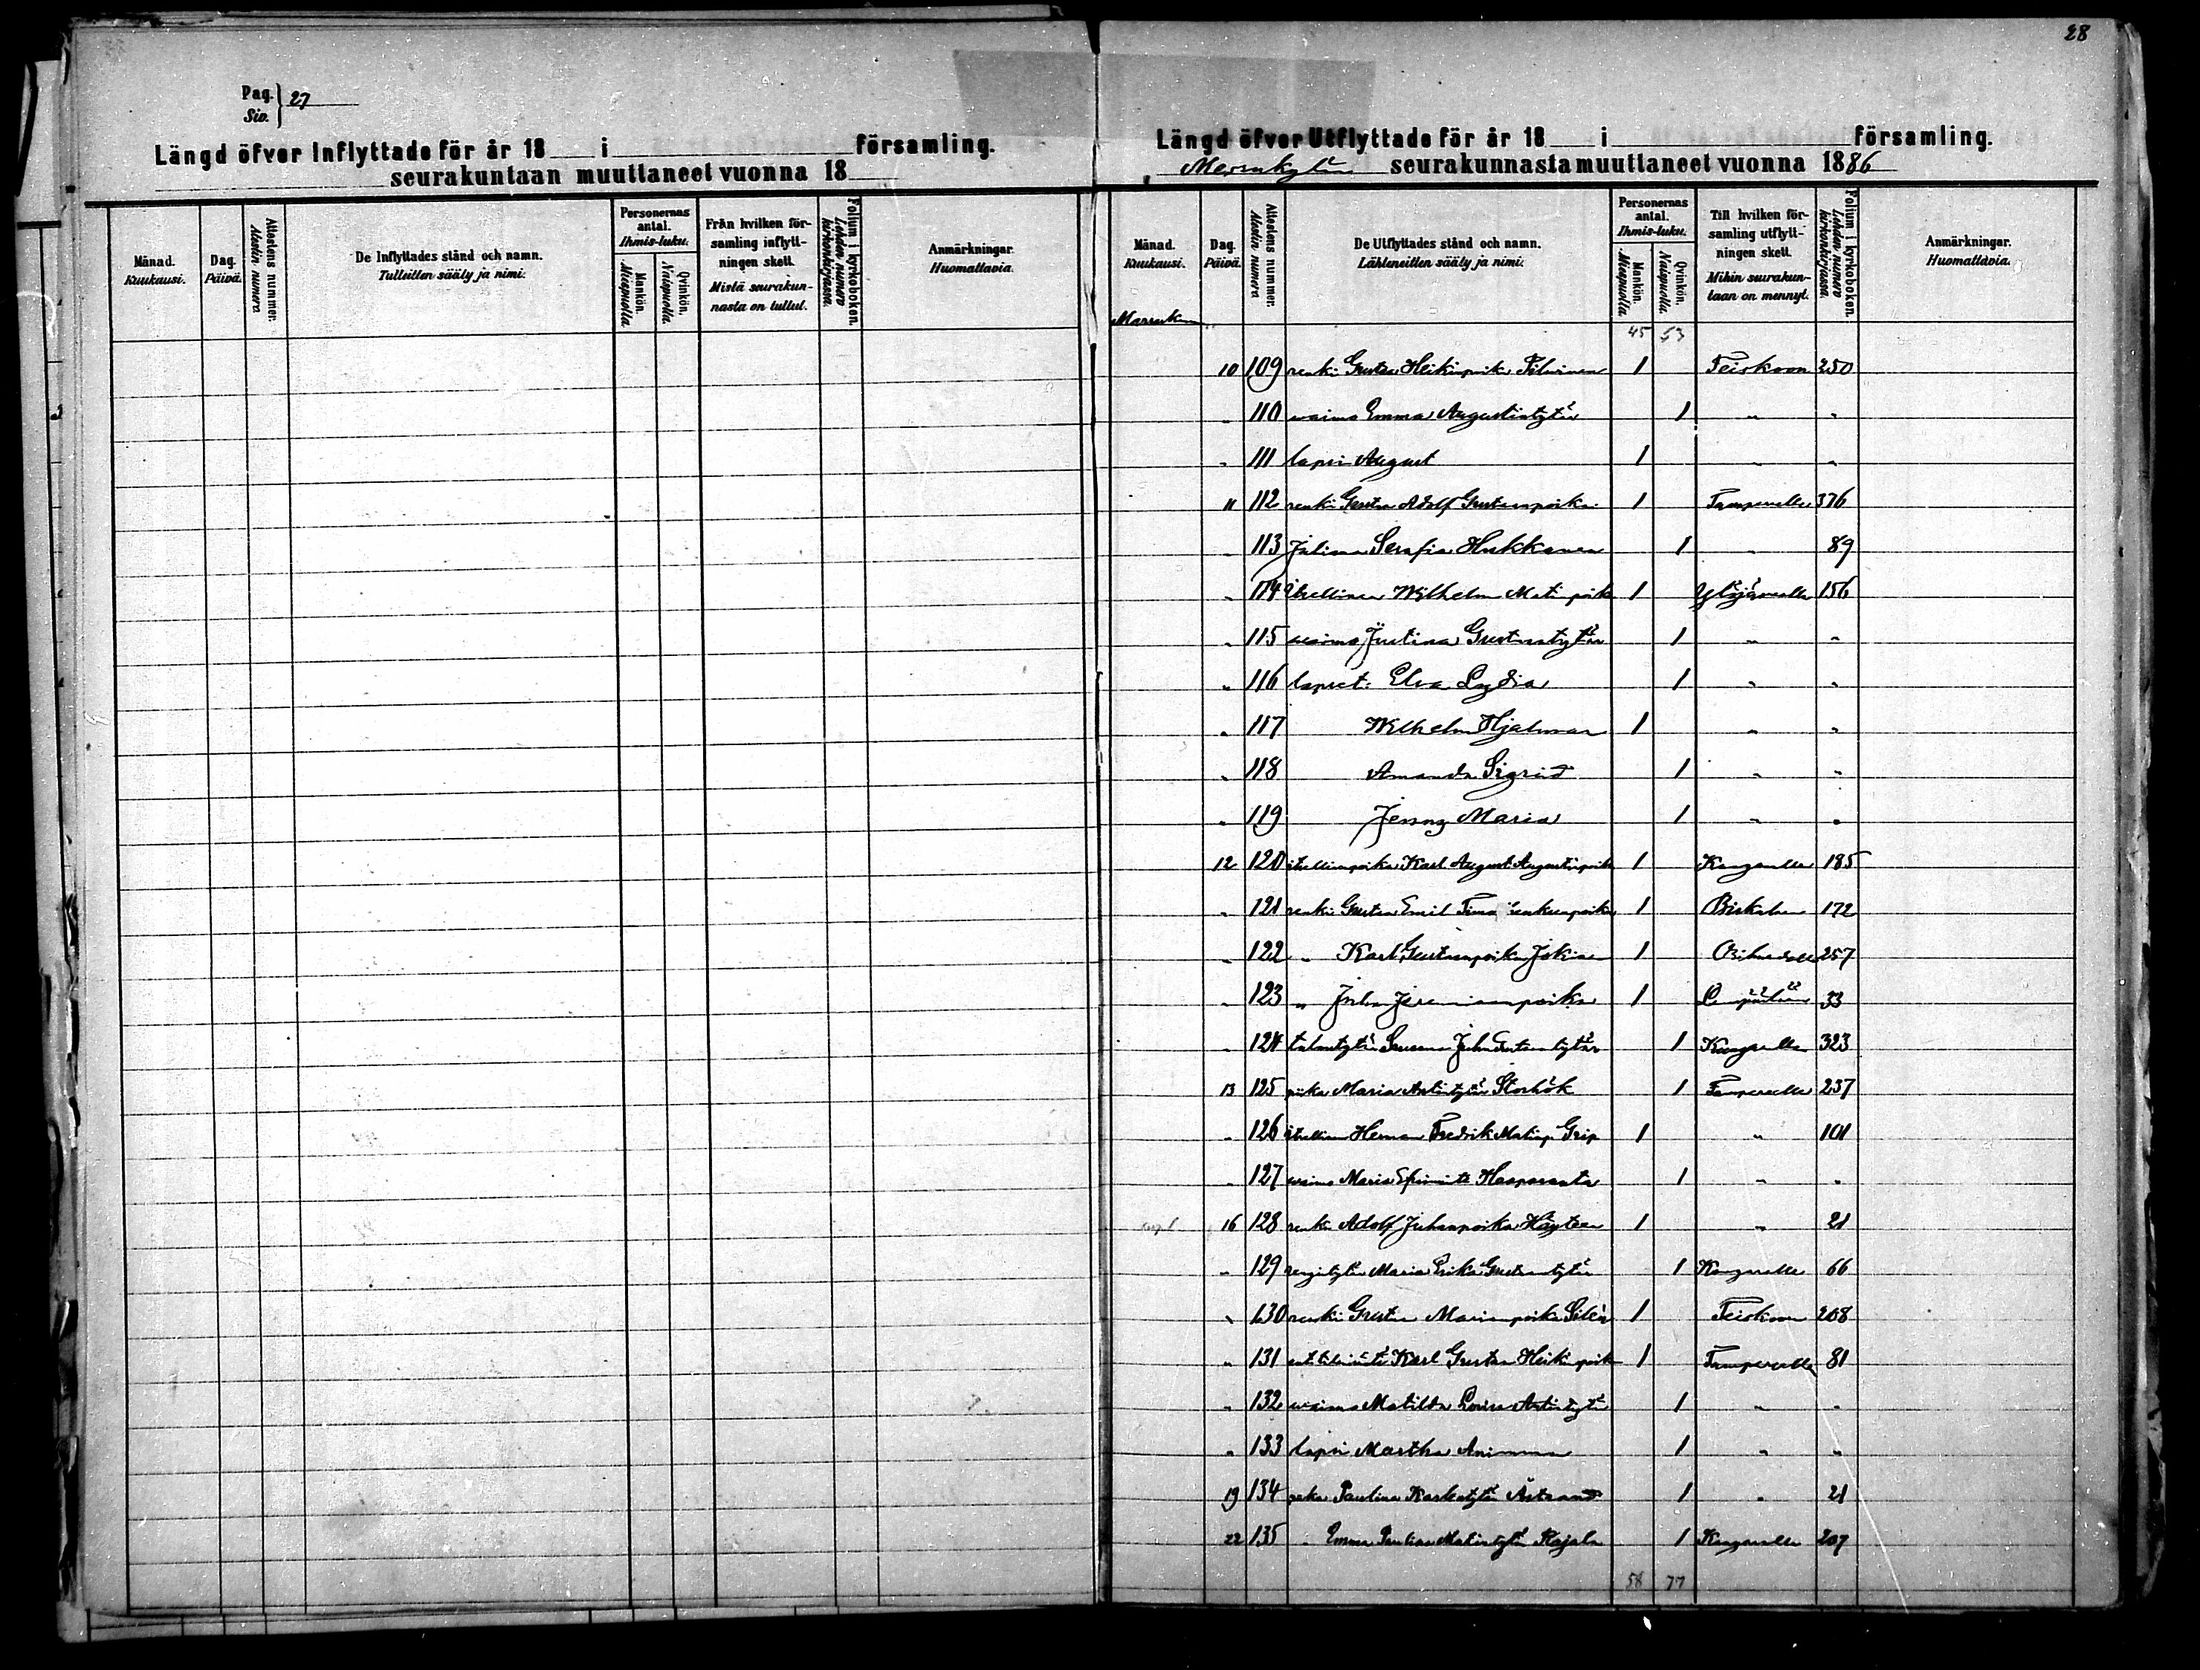 28
Pag. Siv. 27
Längd öfver Inflyttade för år 18 i församling.
seurakuntaan muuttaneet vuonna 18
Månad. Kuukausi.
Dag. Päivä.
Attestens nummer. Atestin numero
De Inflyttades stånd och namn. Tulleitten sääty ja nimi.
Personernas antal. Ihmis-luku.
Mankön. Miespuolla
Qvinkön. Naispuolla
Från hvilken församling inflyttningen skett. Mistä seurakunnasta on tullut.
Folium i kyrkoboken. Lehden numero kirkonkirjassa.
Anmärkningar. Huomattavia.
Längd öfver Utflyttade för år 18 i församling.
Messukylän seurakunnasta muuttaneet vuonna 1886
Månad. Kuukausi.
Dag. Päivä.
Attestens nummer. Atestin numero
De Utflyttades stånd och namn. Lähteneitten sääty ja nimi.
Personernas antal. Ihmis-luku.
Mankön. Miespuolla
Qvinkön. Naispuolla
Till hvilken församling utflyttningen skett. Mihin seurakuntaan on mennyt.
Folium i kyrkoboken. Lehden numero kirkonkirjassa.
Anmärkningar. Huomattavia.
Marrask
45 53
10 109 renki Gustaa Heikinpoika 1 Teiskoon 250
" 110 waimo Emma Augustintytär 1 " "
" 111 lapsi August 1 " "
11 112 renki Gustaa Adolf Gustaanpoika 1 Tampereelle 376
" 113 Juliana Serafia Hukkanen 1 " 89
" 114 itsellinen Wilhelm Matinpoika 1 Ylöjärvelle 156
" 115 waimo Justina Gustaantytär 1 " "
" 116 lapset: Elva Lydia 1 " "
" 117 Wilhelm Hjalmar 1 " "
" 118 Amanda Sigrid 1 " "
" 119 Jenny Maria 1 " "
12 120 itsellisenpoika Karl August Augustinpoika 1 Kangasalle 185
" 121 renki Gustaa Emil 1 Birkalaan 172
" 122 " Karl Gustaanpoika Jokinen 1 257
" 123 " Juha Jeremiaanpoika 1 Lempäälään 33
" 124 talontytär 1 Kangasalle 323
13 125 piika Maria Antintytär Storbök 1 Tampereelle 237
" 126 itsellinen Herman Fredrik Matinp. Grip 1 " 101
" 127 waimo Maria Haaparanta 1 " "
16 128 renki Adolf Juhanpoika 1 " 21
" 129 rengintytär Maria Erika Gustaantytär 1 Kangasalle 66
" 130 renki Gustaa Silén 1 Teiskoon 208
" 131 Karl Gustaa Heikinpoika 1 Tampereelle 81
" 132 waimo Matilda Lovisa Antintytär 1 " "
" 133 lapsi Martha 1 " "
19 134 piika Paulina Karlentytär Åstrand 1 " 21
22 135 " Emma Paulina Matintytär Rajala 1 Kangasalle 207
58 77